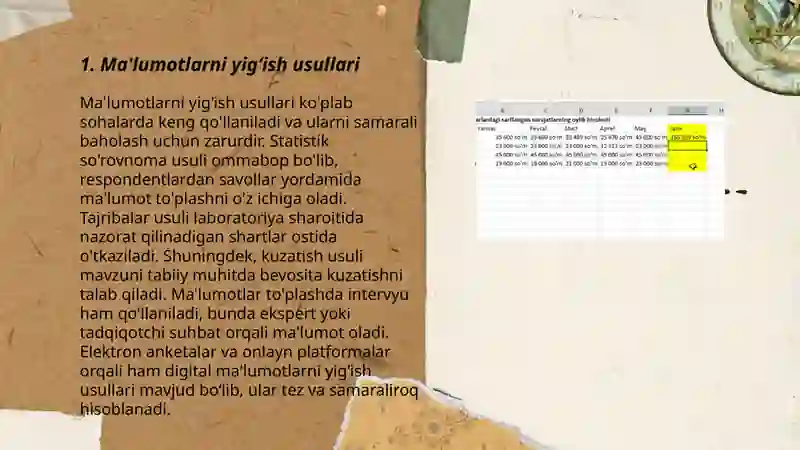 1. Ma'lumotlarni yig‘ish usullari
Ma'lumotlarni yig'ish usullari ko'plab
sohalarda keng qo'llaniladi va ularni samarali
baholash uchun zarurdir. Statistik
so'rovnoma usuli ommabop bo'lib,
respondentlardan savollar yordamida
ma'lumot to'plashni o'z ichiga oladi.
Tajribalar usuli laboratoriya sharoitida
nazorat qilinadigan shartlar ostida
o'tkaziladi. Shuningdek, kuzatish usuli
mavzuni tabiiy muhitda bevosita kuzatishni
talab qiladi. Ma'lumotlar to'plashda intervyu
ham qo‘llaniladi, bunda ekspert yoki
tadqiqotchi suhbat orqali ma'lumot oladi.
Elektron anketalar va onlayn platformalar
orqali ham digital ma’lumotlarni yig‘ish
usullari mavjud bo‘lib, ular tez va samaraliroq
hisoblanadi.
sarflangan oylik hisoboti
Fevral Mart Aprel May